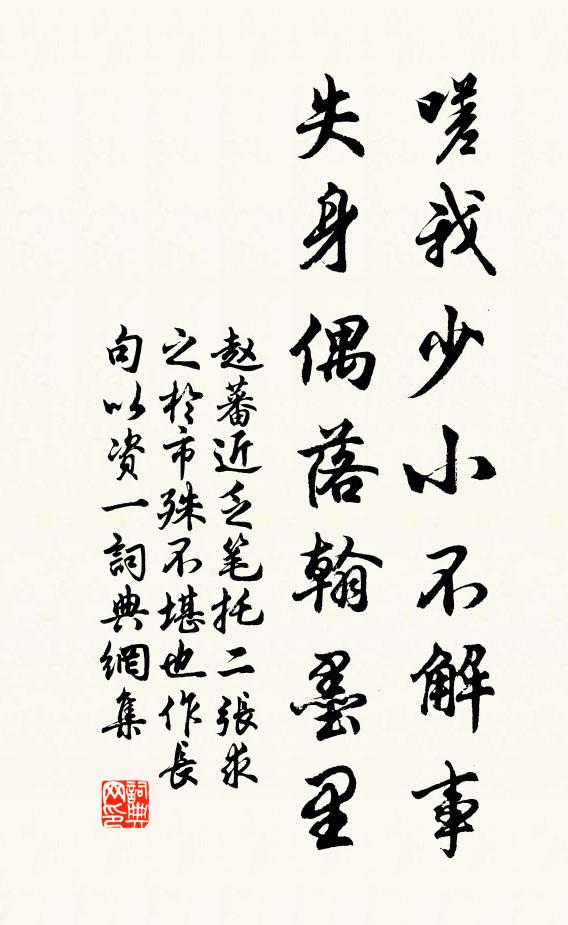 嗟我少小不解事
失身偶落翰墨里
赵蕃近乏笔托二張求
之於市殊不堪也作長
句以资一詞典網集
詞典网印